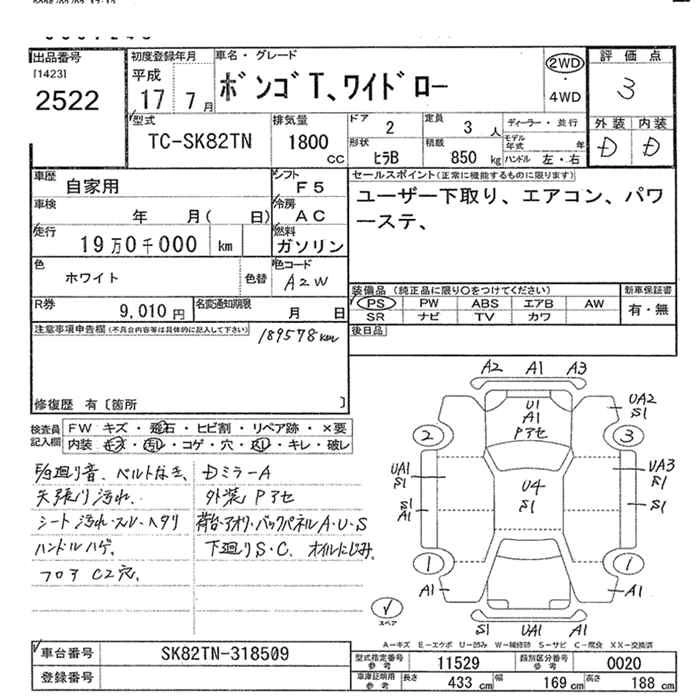 出品番号
[1423]
2522
初度登録年月
平成
17 7月
車名・グレード
ボンゴT、ワイドロー
2WD
・
4WD
評価点
3
外装 内装
D D
型式
TC-SK82TN
排気量
1800
CC
ドア
2
定員
3 人
ディーラー・並行
モデル年式 年
形状
ヒラB
積載
850 kg
ハンドル 左・右
車歴
自家用
シフト
F5
セールスポイント(正常に機能するものに限ります)
ユーザー下取り、エアコン、パワ
ーステ、
車検
年 月( 日)
冷房
AC
走行
19万0千000 km
燃料
ガソリン
色
ホワイト
色替
色コード
A2W
装備品 (純正品に限り○をつけてください)
新車保証書
PS PW ABS エアB AW
有・無
SR ナビ TV カワ
R券
9,010円
名変通知期限
月 日
後日品
注意事項申告欄(不具合内容等は具体的に記入して下さい)
189578km
修復歴 有〔箇所 〕
検査員
記入欄
FW キズ・飛石・ヒビ割・リペア跡・×要
内装 キズ・汚れ・コゲ・穴・スレ・キレ・破レ
E/g廻り音、ベルトなき、
天張り汚れ、
シート汚れ・スレ・ヘタリ
ハンドルハゲ、
フロア C2穴、
DミラーA
外装 Pアセ
荷台・アオリ・バックパネルA・U・S
下廻りS・C、オイルにじみ、
A2 A1 A3
U1
A1
Pアセ
UA2
S1
2
3
UA1
S1
U4
S1
UA3
S1
S1
A1
S1
1
1
A1
A1
スペア
S1 UA1 A1
A-キズ E-エクボ U-凹み W-補修跡 S-サビ C-腐食 XX-交換済
車台番号
SK82TN-318509
登録番号
型式指定番号
参考
11529
類別区分番号
参考
0020
車庫証明用
参考
長さ 433 cm
幅 169 cm
高さ 188 cm